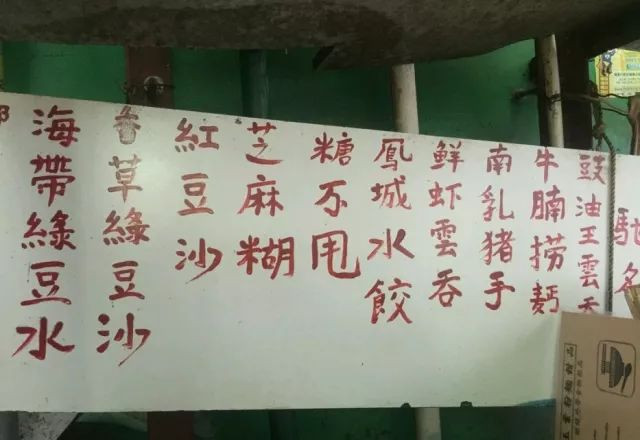 馳名
豉油王雲吞
牛腩捞麪
南乳猪手
鮮虾雲吞
鳳城水餃
糖不甩
芝麻糊
紅豆沙
香草綠豆沙
海帶綠豆水